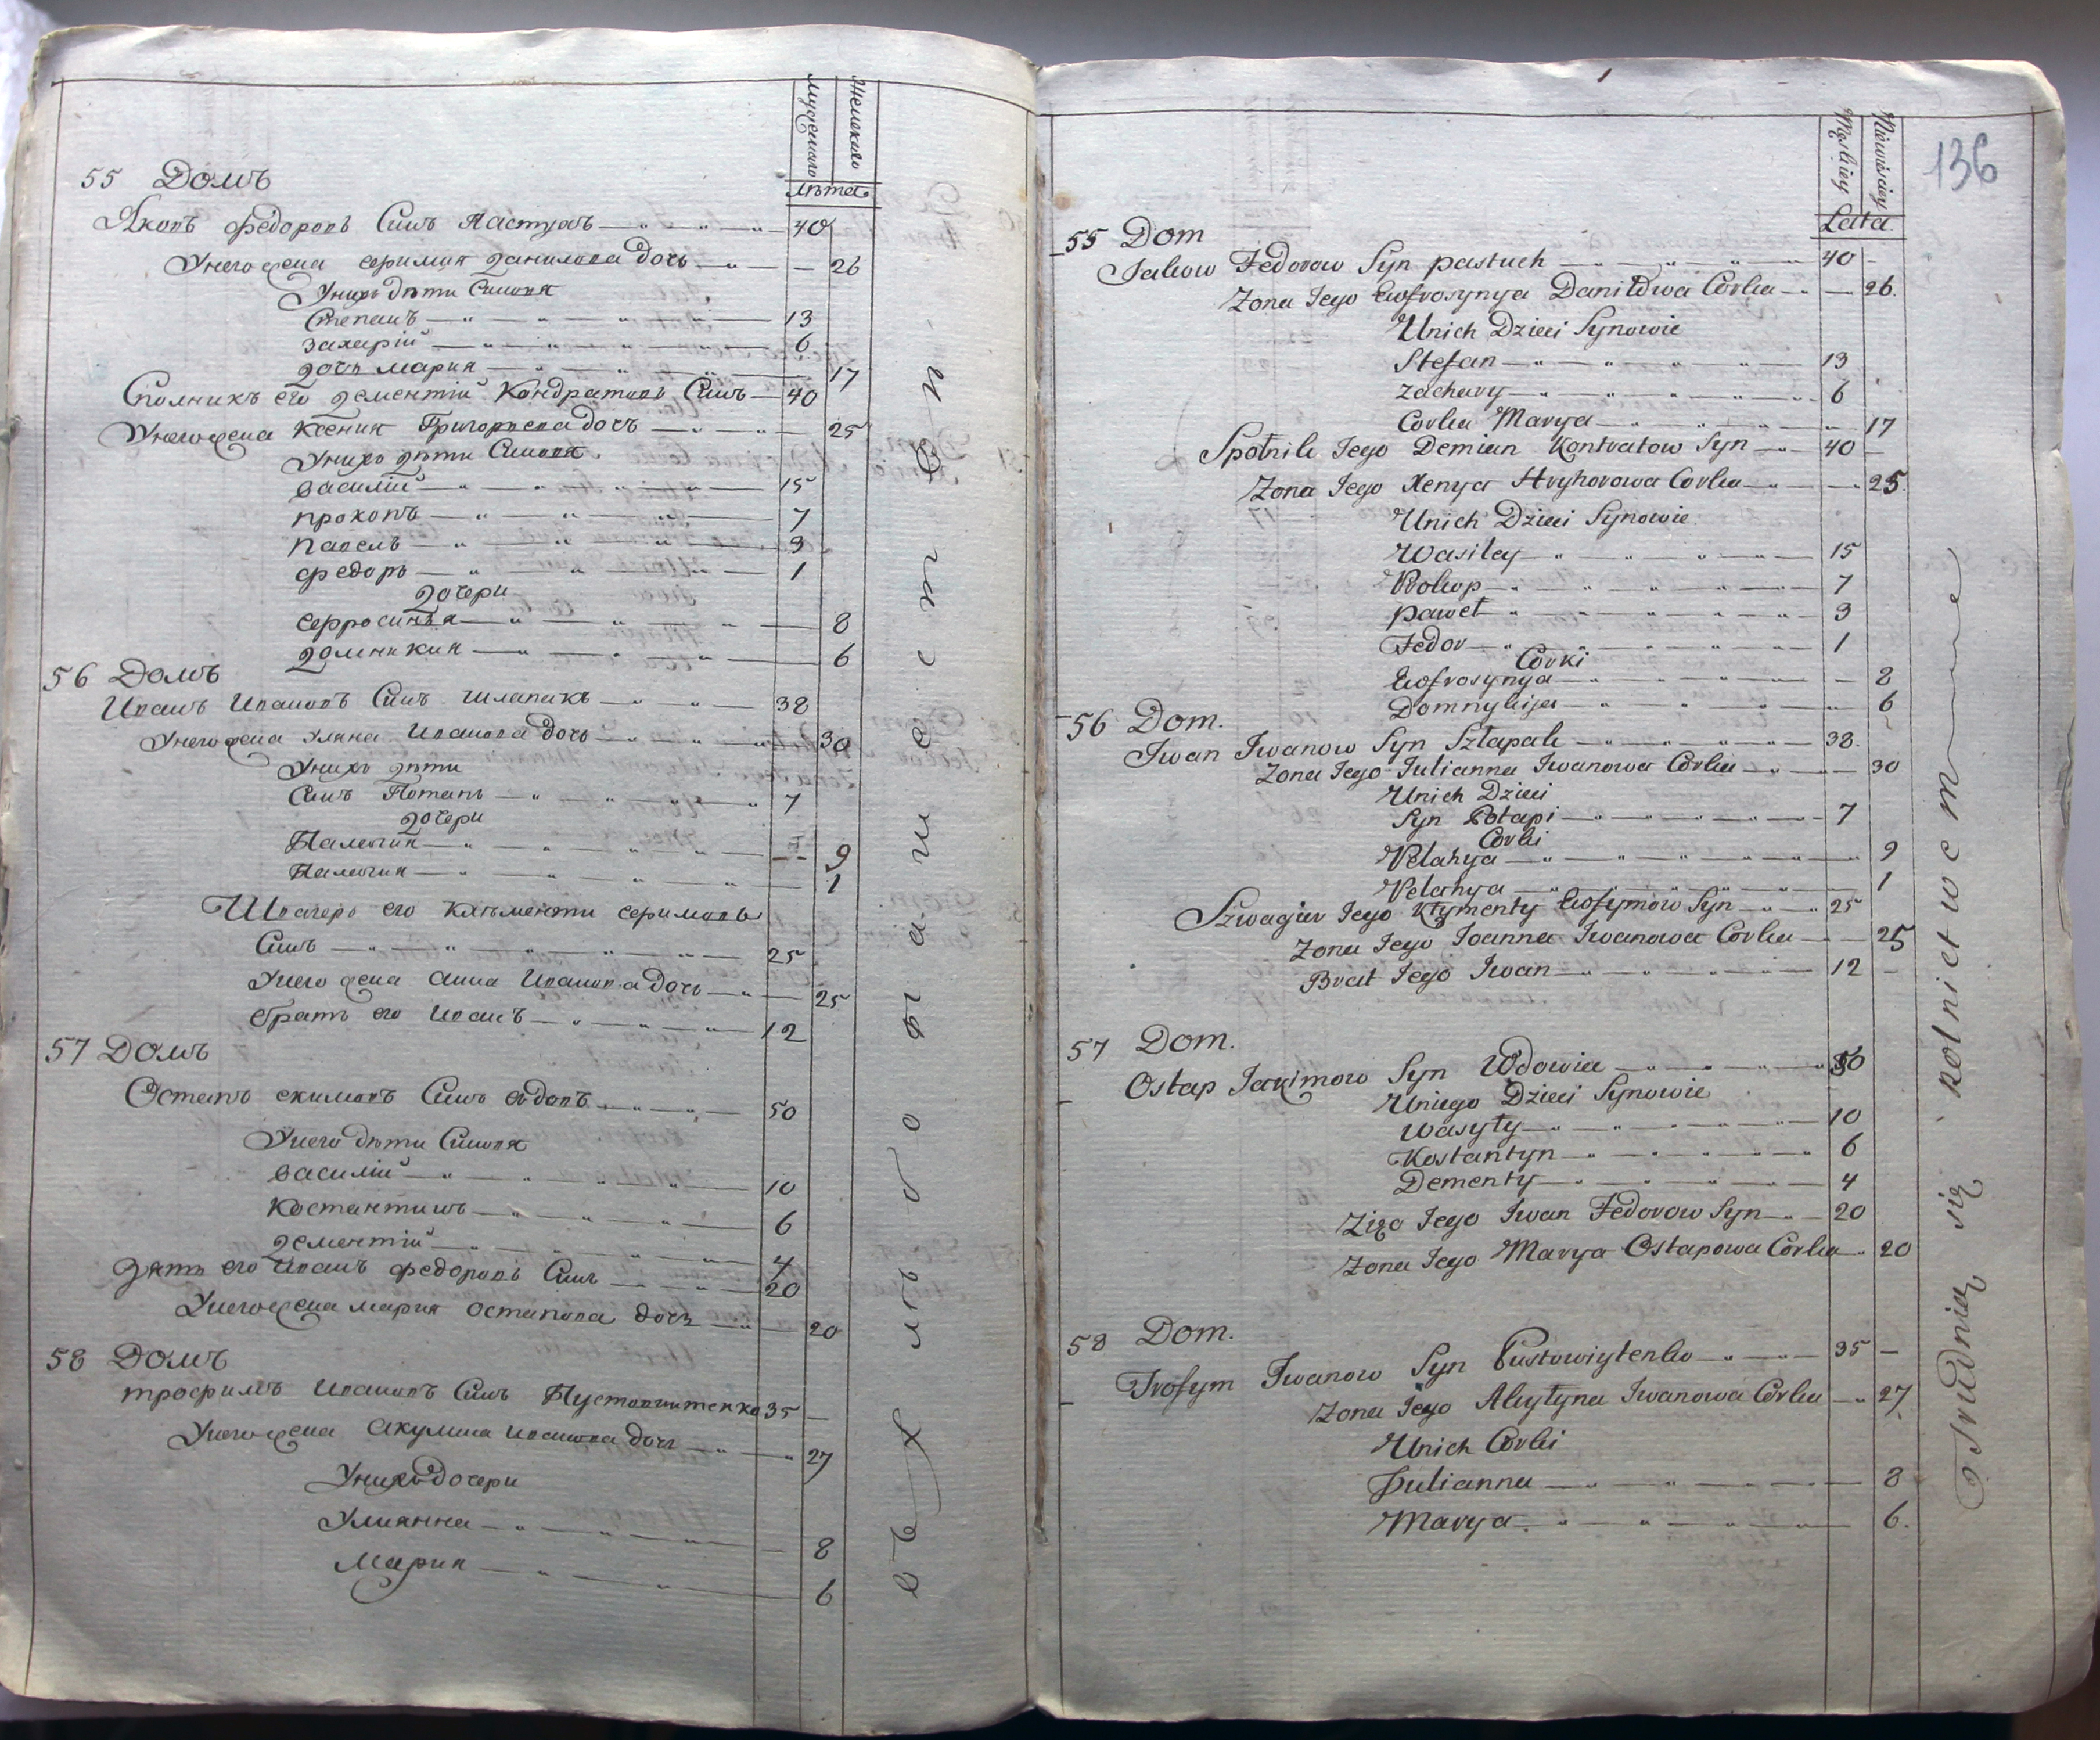 мужеского
женского
лѣта
55 Домъ
Яковъ федоровъ Синъ Пастухъ 40
Унего жена Ефимия данилова дочь 26
Унихъ дѣти Синовя
Степанъ 13
захарій 6
дочь мария 17
Сполникъ его дементій Кондратовъ Синъ 40
Унего жена Ксения Григориева дочь 25
Унихъ дѣти Синовя
василій 15
прокопъ 7
павелъ 3
федоръ 1
дочери
Ефросиния 8
домникия 6
56 Домъ
Иванъ Ивановъ Синъ шлапакъ 38
Унего жена Уляна Иванова дочь 30
Унихъ дѣти
Синъ Потапъ 7
дочери
Палагия 9
Палагия 1
Швагеръ его Климентий Ефимовъ
Синъ 25
Унего жена Анна Иванова дочь 25
братъ его Иванъ 12
57 Домъ
Остапъ екимовъ Синъ вдовъ 50
Унего дѣти Синовя
василій 10
Костантинъ 6
дементій 4
зять его Иванъ федоровъ Синъ 20
Унего жена мария Остапова дочь 20
58 Домъ
трофимъ Ивановъ Синъ Пустовитенко 35
Унего жена Акулина Иванова дочь 27
Унихъ дочери
Улиянна 8
Мария 6
въ хлѣбопашест вѣ
Męskiey
Niewieściey
Lata
136
55 Dom
Jakow Fedorow Syn pastuch 40
Zona Jego Ewfrosynya Daniłowa Corka 26
Unich Dzieci Synowie
Stefan 13
Zachary 6
Corka Marya 17
Społnik Jego Demian Kontratow Syn 40
Zona Jego Xenya Hryhorowa Corka 25
Unich Dzieci Synowie
Wasiley 15
Prokop 7
paweł 3
Fedor 1
Corki
Ewfrosynya 8
Domnykija 6
56 Dom.
Iwan Iwanow Syn Szłapak 38
Zona Jego Julianna Iwanowa Corka 30
Unich Dzieci
Syn Potapi 7
Corki
Pelahya 9
Pelahya 1
Szwagier Jego Kłymenty Ewfymow Syn 25
Zona Jego Joanna Iwanowa Corka 25
Brat Jego Iwan 12
57 Dom.
Ostap Jakimow Syn Wdowiec 50
Uniego Dzieci Synowie
Wasyły 10
Kostantyn 6
Dementy 4
Zięc Jego Iwan Fedorow Syn 20
Zona Jego Marya Ostapowa Corka 20
58 Dom.
Trofym Iwanow Syn Pustowiytenko 35
Zona Jego Akułyna Iwanowa Corka 27
Unich Corki
Julianna 8
Marya 6
Trudnią się rolnictwem